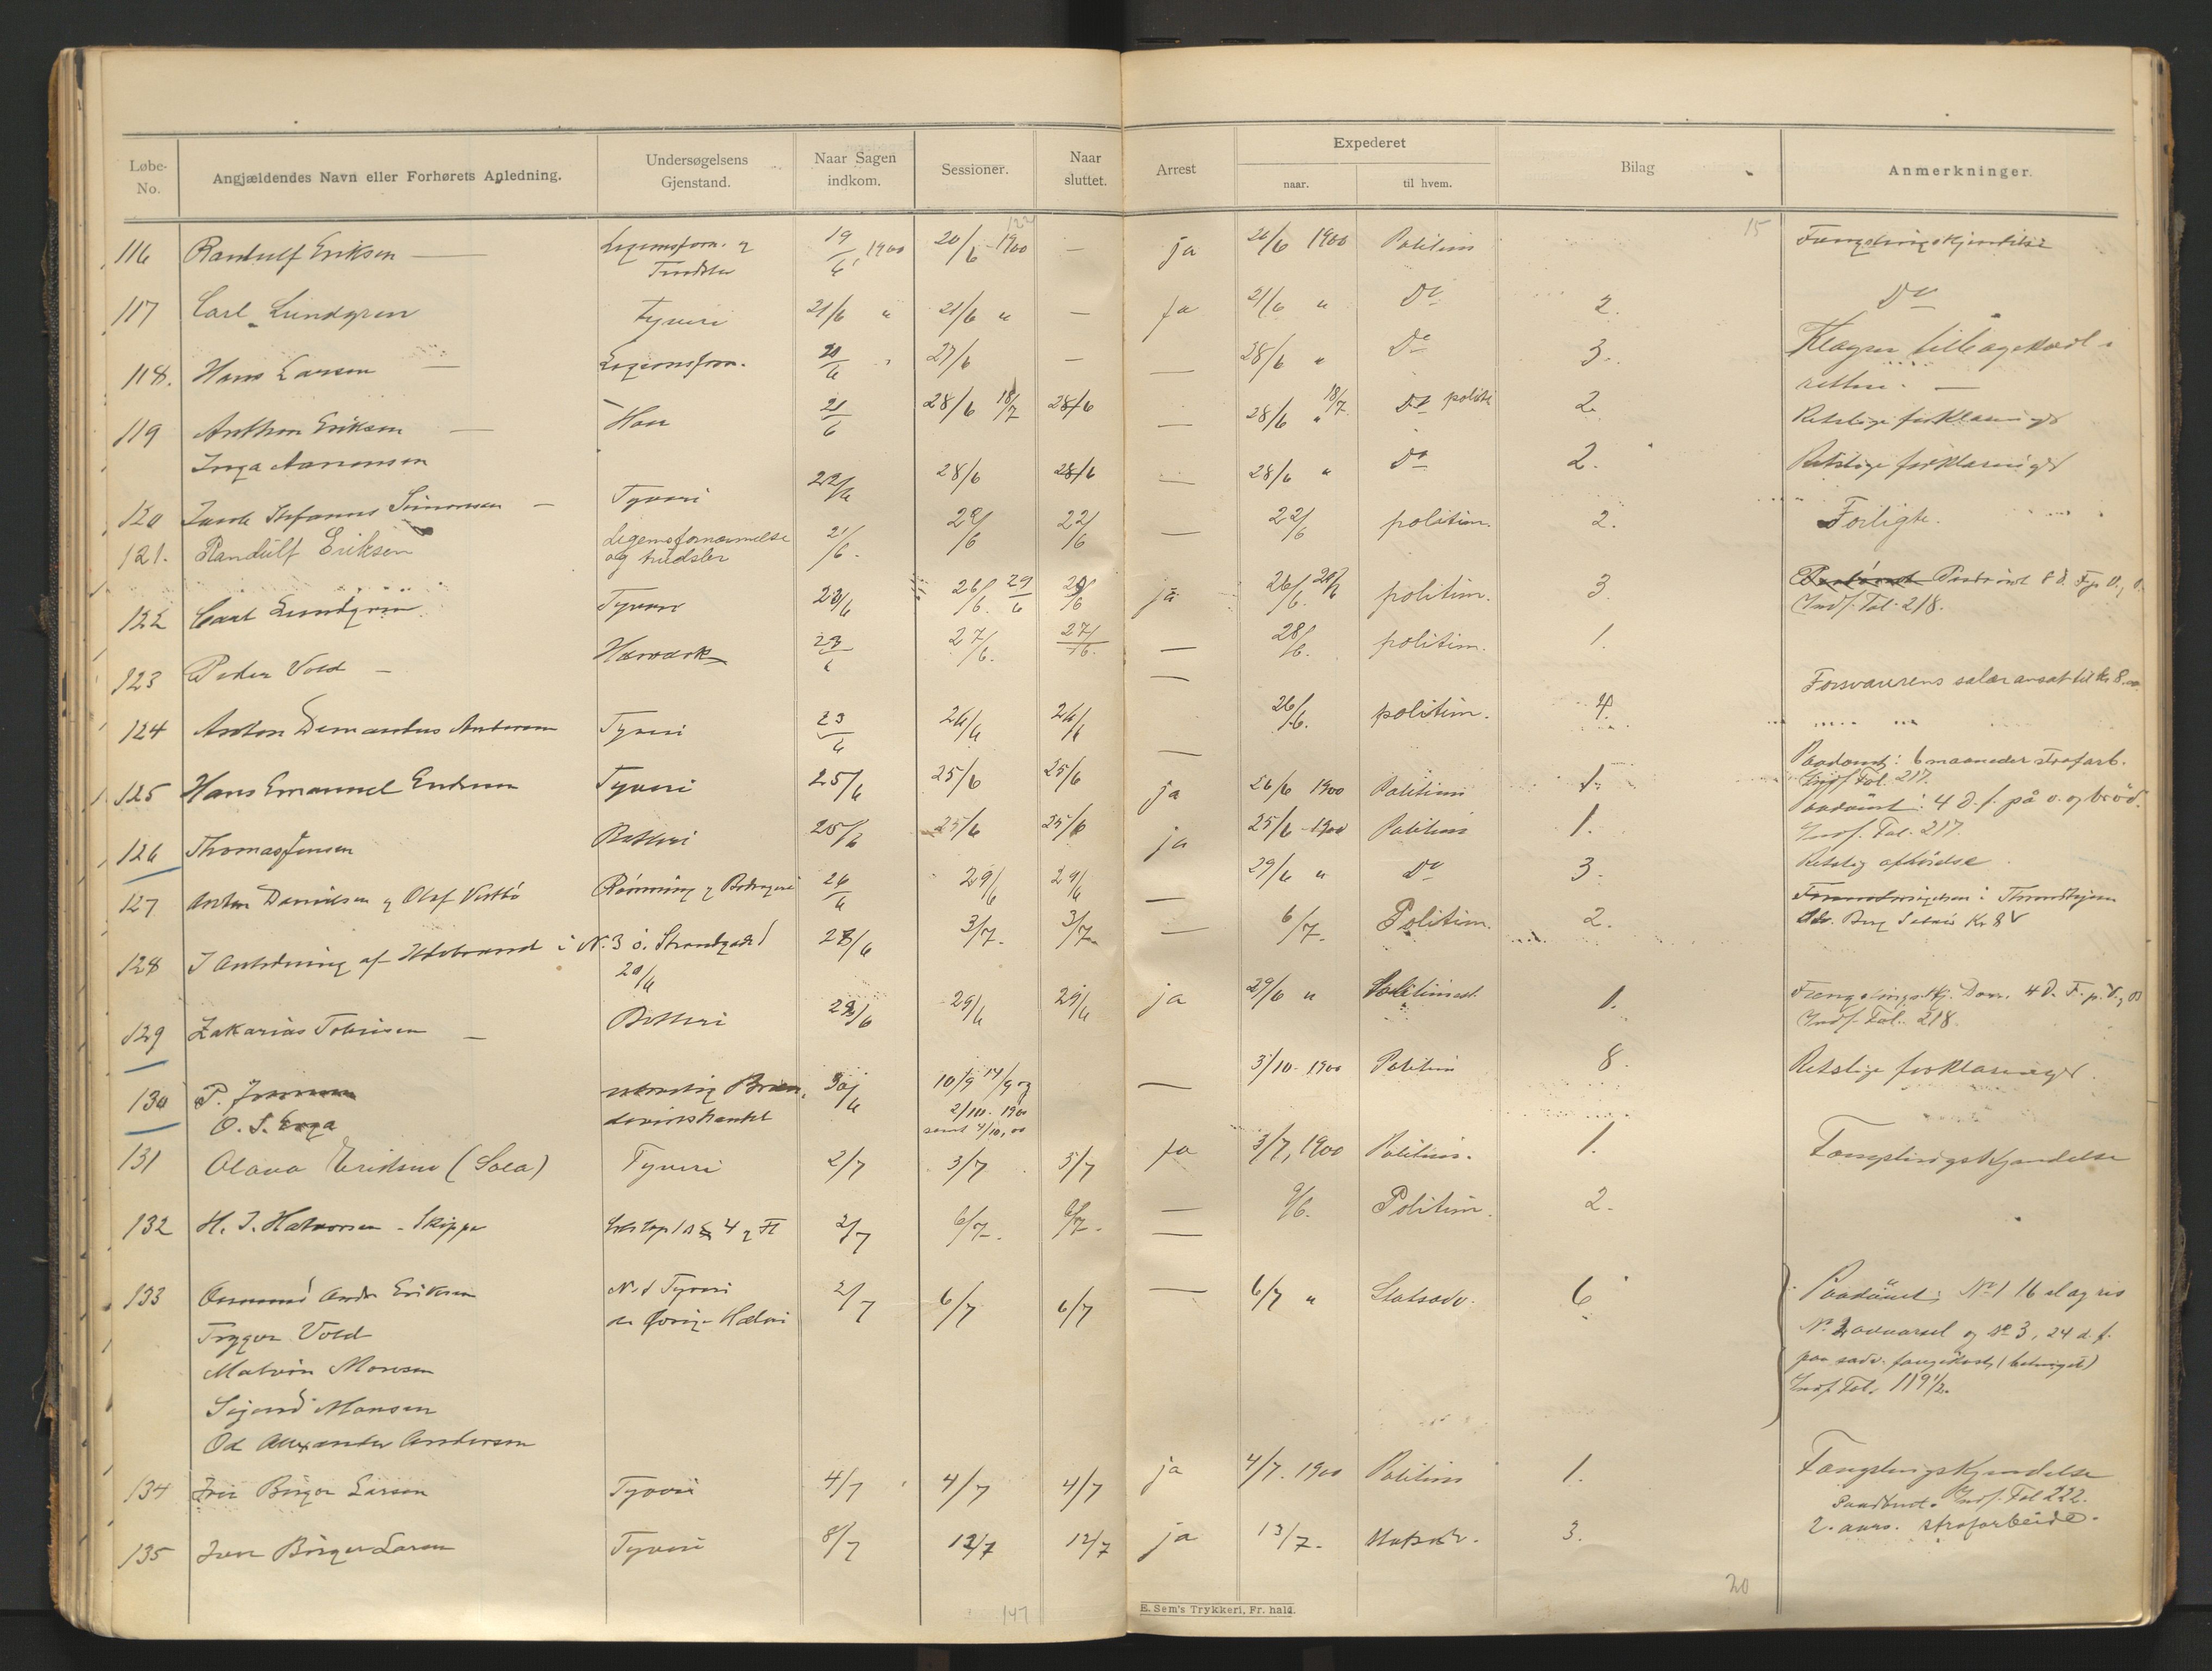 Løbe-No. Angjældendes Navn eller Forhørets Anledning. Undersøgelsens Gjenstand. Naar Sagen indkom. Sessioner. Naar sluttet. Arrest Expederet naar. til hvem. Bilag Anmerkninger.
122 15
116 Randulf Eriksen — Legemsforn. og 19/6 1900 20/6 1900 — ja 20/6 1900 Politim Fængslingskjendelse
Trudsler
117 Carl Lundgren Tyveri 21/6 " 21/6 " — ja 21/6 " Do 2. Do
118. Hans Larsen — Legemsforn. 21/6 " 27/6 — — 28/6 " Do 3. Klagen tilbagekaldt i
retten. —
119 Anthon Eriksen — Hor 21/6 28/6 18/7 28/6 — 28/6 " 18/7 Do politi 2. Retslige forklaringer
Inga Aanonsen
120 Jacob Stefanus Simonsen — Tyveri 22/6 28/6 28/6 — 28/6 " Do 2. Retslige forklaringer
121. Randulf Eriksen Legemsfornærmelse 21/6. 22/6 22/6 — 22/6 politim. 2. Forligte.
og trudsler
122 Carl Lundgren Tyveri 23/6 26/6. 29/6 29/6 ja 26/6. politim. 3. Paadömt 8 d. F. p. V. og B.
Indf. Fol. 218.
123 Peder Vold — Hærværk 23/6 27/6. 27/6. — 28/6. politim. 1.
124 Anton Demantus Andersen Tyveri 23/6 26/6 26/6 — 26/6. politim. 4. Forsvarerens salær ansat til Kr 8.00
125 Hans Emanuel Endresen Tyveri 25/6 25/6 25/6 ja 26/6 1900 Politim 1. Paadømt: 6 maaneder strafarb.
Indf. Fol. 217.
126 Thomas Jensen Betleri 25/6 25/6 25/6 ja 25/6 1900 Politim 1. Paadömt: 4 d. f. på v. og bröd.
Indf. Fol. 217.
127 Anton Danielsen og Olaf Rømning og Bedrageri 26/6 29/6 29/6 — 29/6 " Do 3. Retslig afhörelse.
128 I Anledning af Ildebrand i N. 3 ö. Strandgade 28/6 3/7. 3/7. — 6/7. Politim. 2.
20/6
129 Zakarias Tobiasen — Betleri 28/6 29/6 29/6 ja 29/6 " Politimest. 1. Fængslingskj. Dom. 4 D. F. p. V. og B
Indf. Fol. 218.
130 P. 30/6 10/9 14/9 og — 3/10. 1900 Politim 8. Retslige forklaringer.
O. S. Enga 2/10. 1900
samt 4/10, 00
131 Olava Eriksen (Sola) Tyveri 2/7 3/7 3/7 ja 3/7, 1900 Politim. 1. Fængslingskjendelse
132 H. J. Halvorsen - Skipper 2/7 6/7. 6/7. — 9/6. Politim. 2.
133 Osmund Andr Eriksen N. 1 Tyveri 2/7 6/7 6/7 — 6/7 " Statsadv. 6 Paadömt: No 1 16 slag ris
Trygve Vold de övrige Hæleri No 2 advarsel og No 3, 24 d. f.
Malvin Monsen paa sædv. fangekost (betinget)
Sigurd Monsen Indf. Fol. 119½.
Od Alexander Andersen
134 Iver Birger Larsen Tyveri 4/7 4/7 4/7 ja 4/7. 1900 Politim 1. Fængslingskjendelse
135 Iver Birger Larsen Tyveri 8/7 12/7 12/7 ja 13/7. Statsadv. 3. Paadömt. Indf. Fol 222.
2. aars. strafarbeide.
147 20
E. Sem's Trykkeri, Fr. hald.